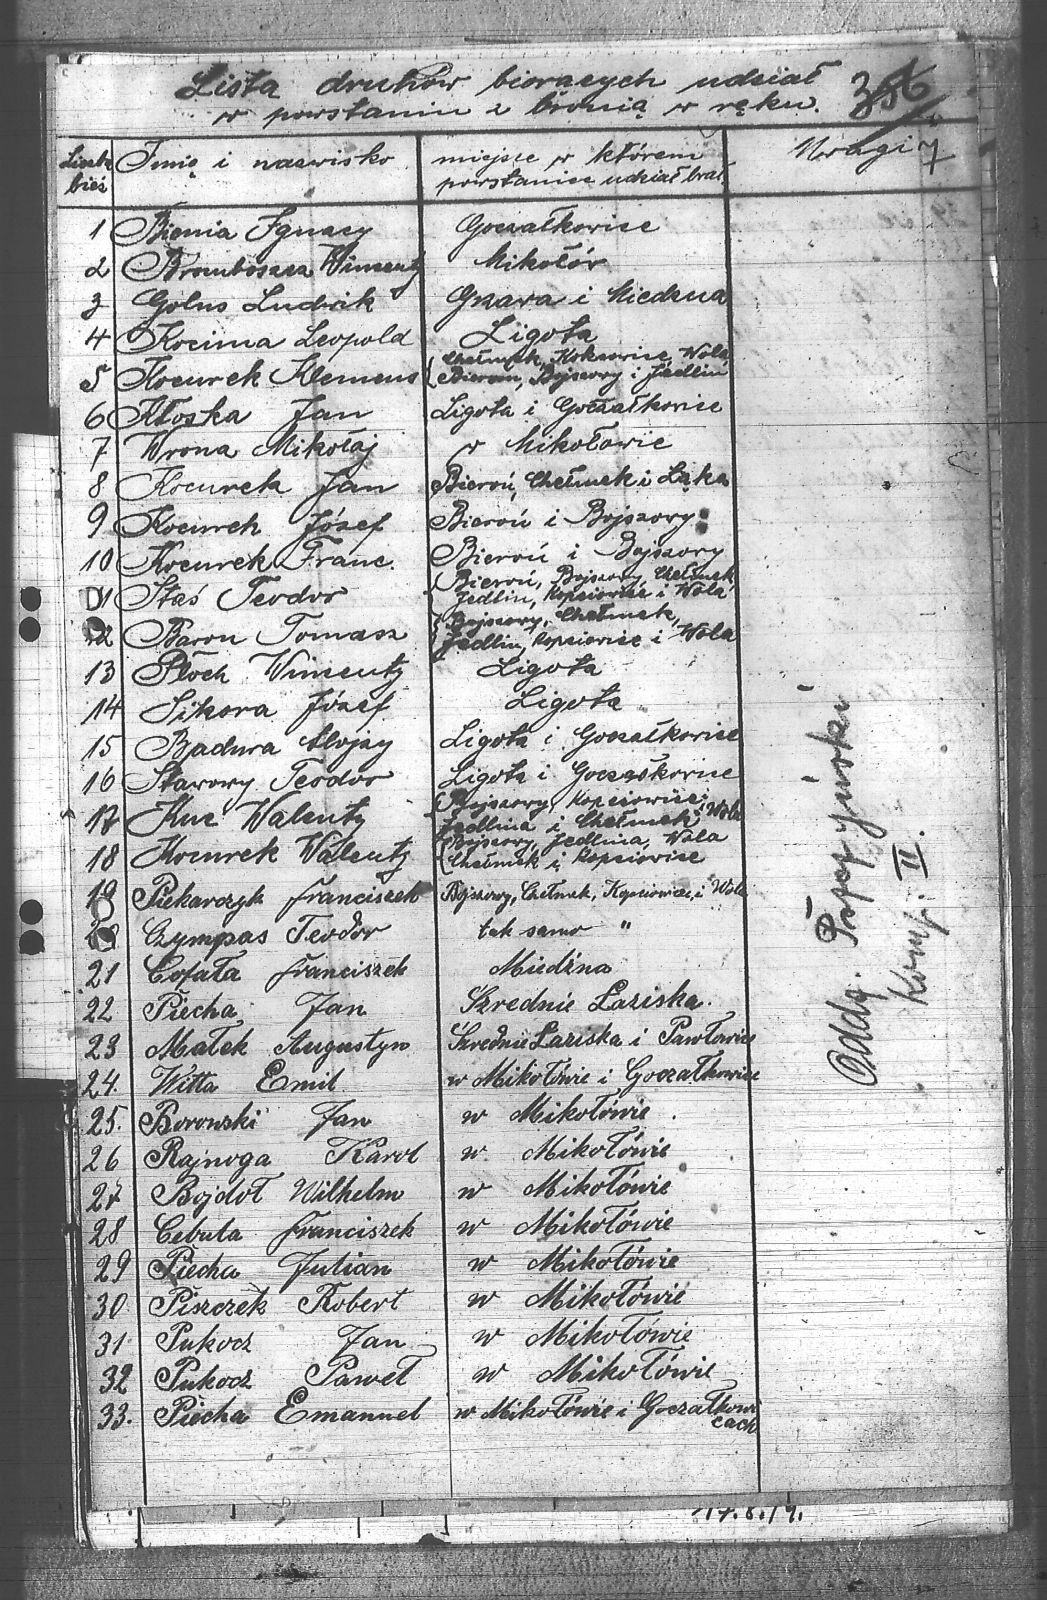 Lista druhów biorących udział
w powstaniu z bronią w ręku.
356
7
Liczba bież
Imię i nazwisko
miejsce w którem powstaniec udział brał
Uwagi
1 Bienia Ignacy Goczałkowice
2 Bromboszcz Wincenty Mikołów
3 Golus Ludwik Gzawa i Miedzna
4 Kocima Leopold Ligota
5 Kocurek Klemens Chełmek, Kokszowice, Wola
Bieruń, Bojszowy i Jedlin
6 Kłoska Jan Ligota i Goczałkowice
7 Wrona Mikołaj w Mikołowie
8 Kocurek Jan Bieruń, Chełmek i Łąka
9 Kocurek Józef Bieruń i Bojszowy
10 Kocurek Franc. Bieruń i Bojszowy
11 Staś Teodor Bieruń, Bojszowy, Chełmek
Jedlin, Kopciowice i Wola
12 Baron Tomasz Bojszowy, Chełmek,
Jedlin, Kopciowice i Wola
13 Płoch Wincenty Ligota
14 Sikora Józef Ligota
15 Badura Alojzy Ligota i Goczałkowice
16 Starowy Teodor Ligota i Goczałkowice
17 Kuc Walenty Bojszowy, Kopciowice,
Jedlina i Chełmek, Wola
18 Kocurek Walenty Bojszowy, Jedlina, Wola
Chełmek i Kopciowice
19 Piekarczyk Franciszek Bojszowy, Chełmek, Kopciowice, i Wola
20 Czympas Teodor tak samo "
21 Cofała Franciszek Miedźna
22 Piecha Jan Szrednie Łaziska.
23 Małek Augustyn Szrednie Łaziska i Pawłowice
24. Witta Emil w Mikołówie i Goczałkowice
25. Borowski Jan w Mikołówie.
26 Rajnoga Karol w Mikołówie
27 Bojdoł Wilhelm w Mikołówie
28 Cebula Franciszek w Mikołówie
29 Piecha Julian w Mikołówie
30 Piszczek Robert w Mikołówie
31 Pukocz Jan w Mikołówie
32 Pukocz Paweł w Mikołówie
33. Piecha Emanuel w Mikołówie i Goczałkowi
cach
Oddz. Pszczyński
Komp. II.